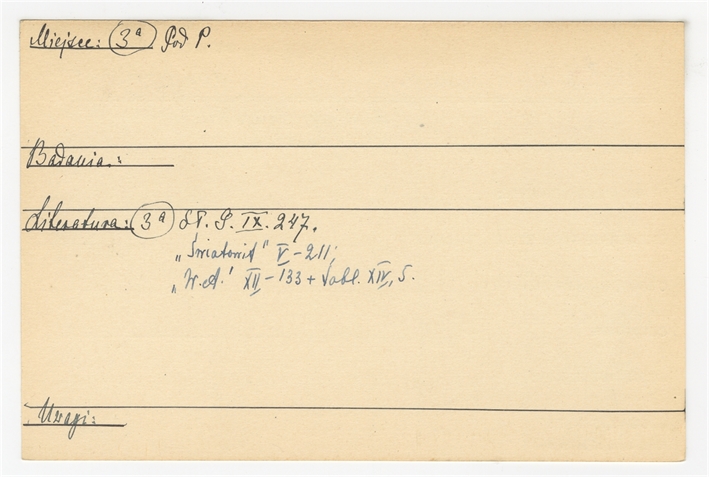 Miejsce: 3a Pod P.
Badania:
Literatura: 3a Sł. G. IX. 247.
„Światowit" V - 211;
„W.A." XII - 133 + tabl. XIV, 5.
Uwagi: